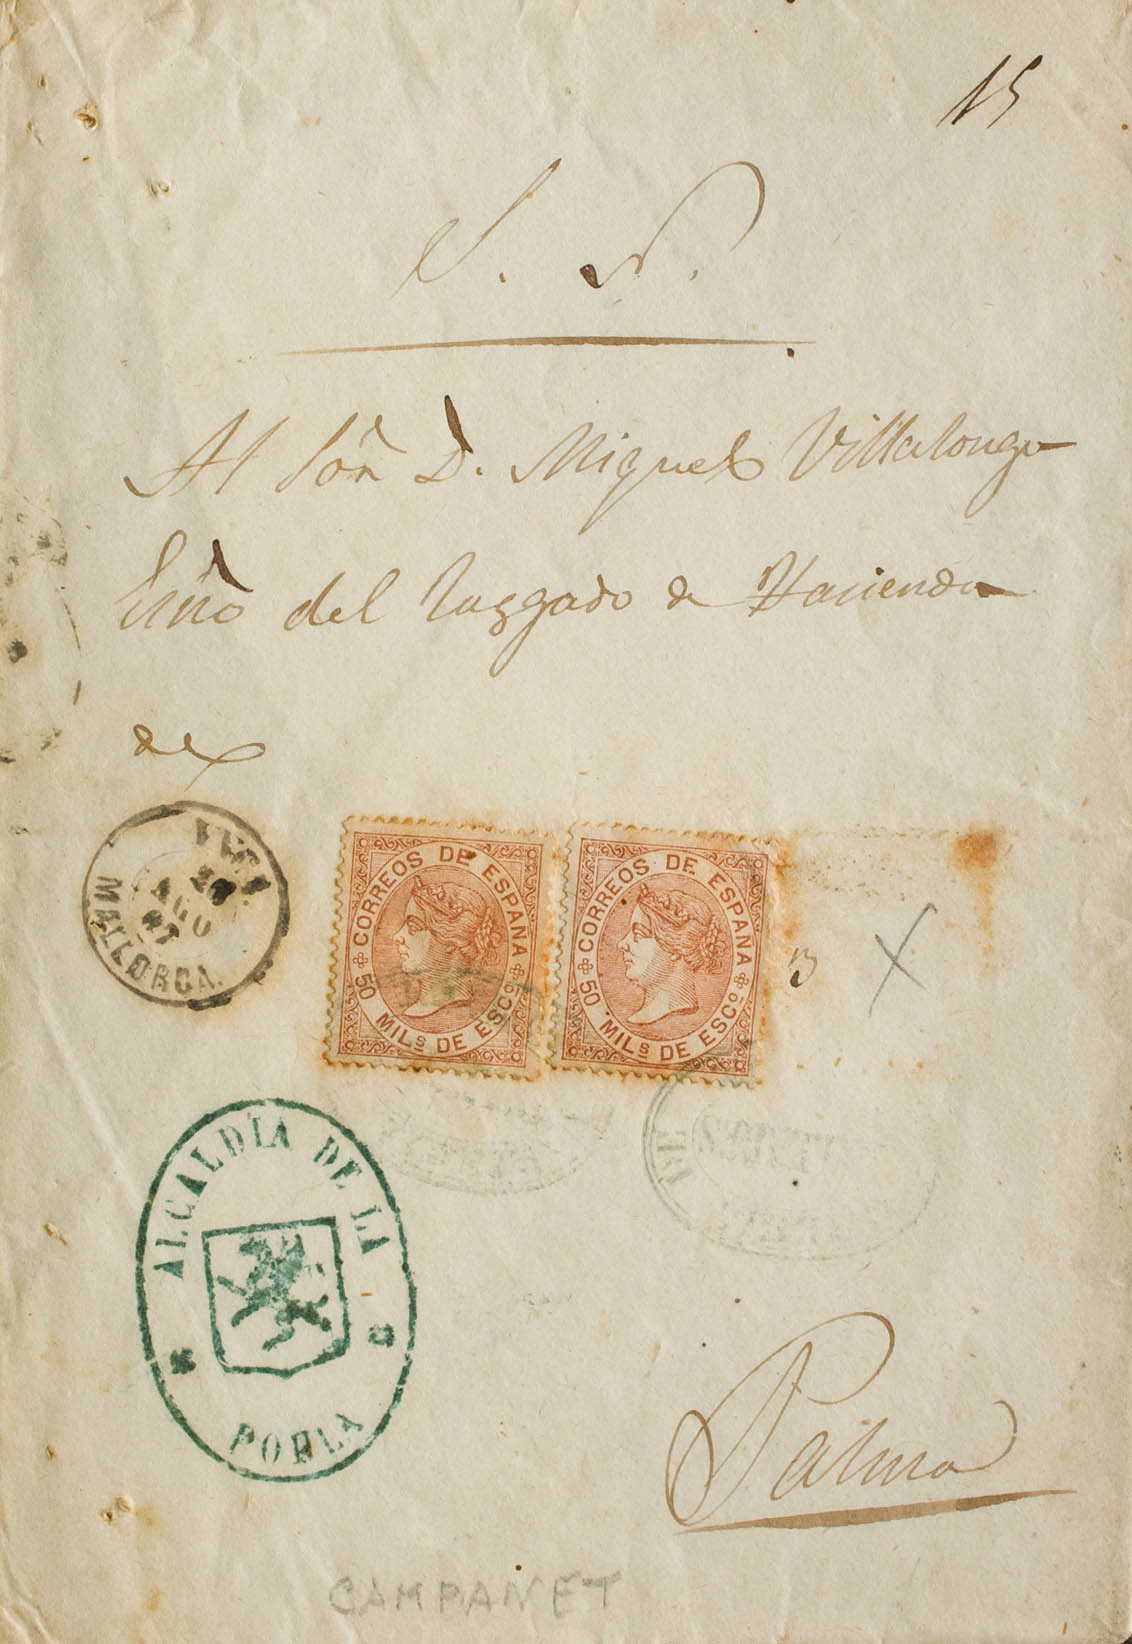 15
S. N.
Al Sőr D. Miguel Villalonga
Esno del Juzgado de Hacienda
de
YNCA
AGO
67
MALLORCA.
CORREOS DE ESPAÑA
50 MILs DE ESCo
CORREOS DE ESPAÑA
50 MILs DE ESCo
13
X
ALCALDIA DE LA
POBLA
Palma
CAMPANET